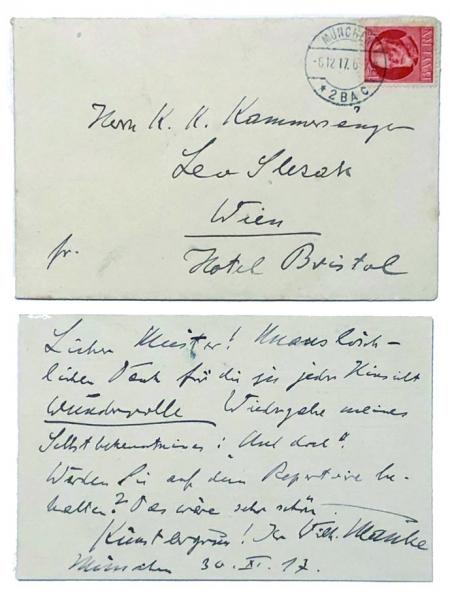 MÜNCHEN
-6.12.17. 6
* 2 B A C
BAYERN
Herrn K. K. Kammersänger
Leo Slezak
Wien
Hotel Bristol
fr.
Lieber Meister! Unauslösch-
lichen Dank für die in jeder Hinsicht
wundervolle Wiedergabe meines
Selbstbekenntnisses: "Und doch".
Werden Sie auf dem Repertoire be-
halten? Das wäre sehr schön.
Künstlergruss! Ihr Wilh. Mauke
München 30. XI. 17.